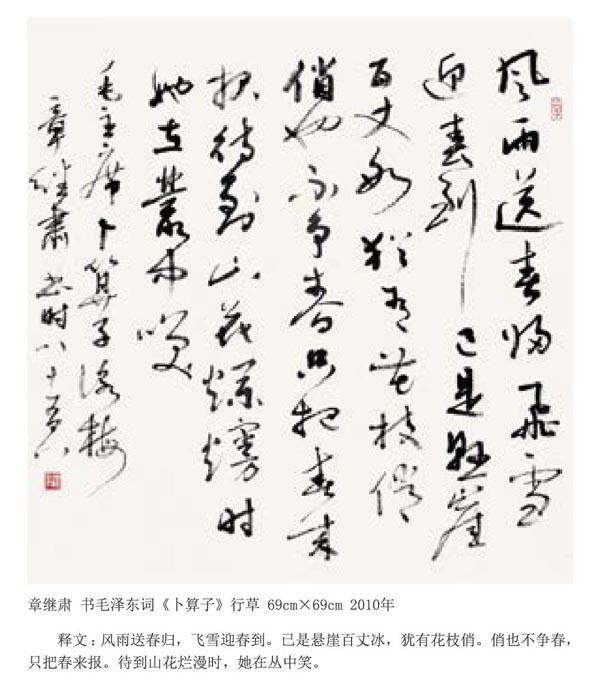 风雨送春归飛雪
迎春到已是悬崖
百丈冰猶有花枝俏
俏也不争春只把春来
报待到山花烂漫时
她在叢中咲
毛主席卜算子詠梅
章继肃书时八十有八
章继肃 书毛泽东词《卜算子》行草 69cm×69cm 2010年
释文：风雨送春归，飞雪迎春到。已是悬崖百丈冰，犹有花枝俏。俏也不争春，
只把春来报。待到山花烂漫时，她在丛中笑。